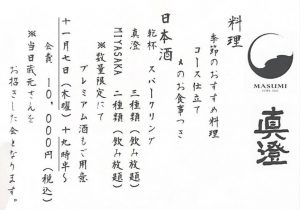 MASUMI
真澄
料理
季節のおすすめ料理
コース仕立て
〆のお食事つき
日本酒
乾杯 スパークリング
真澄 三種類(飲み放題)
MIYASAKA 二種類(飲み放題)
※数量限定にて
プレミアム酒もご用意
十一月七日(木曜)十九時半〜
会費 10,000円(税込)
※当日蔵元さんを
お招きした会となります。